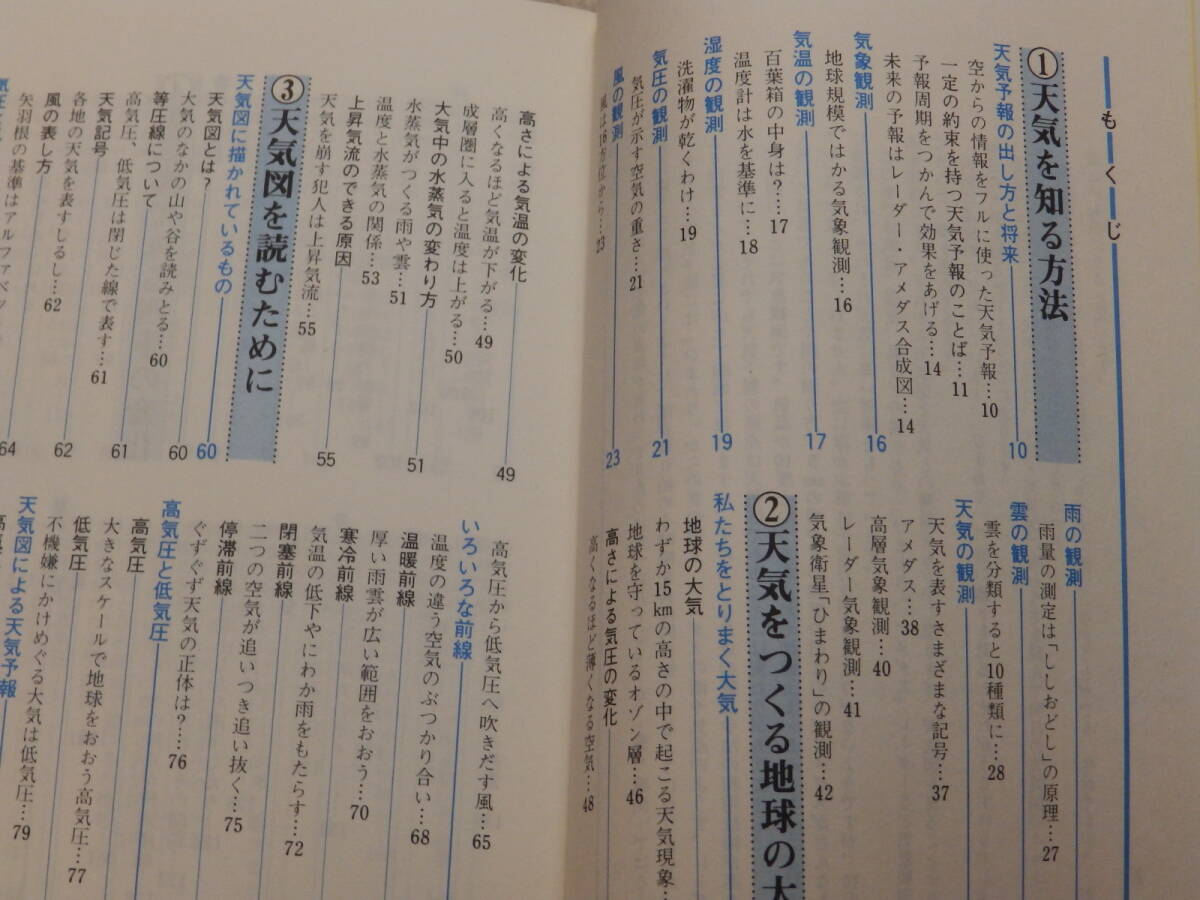 もくじ
①天気を知る方法
天気予報の出し方と将来 10
空からの情報をフルに使った天気予報…10
一定の約束を持つ天気予報のことば…11
予報周期をつかんで効果をあげる…14
未来の予報はレーダー・アメダス合成図…14
気象観測 16
地球規模ではかる気象観測…16
気温の観測 17
百葉箱の中身は?……17
温度計は水を基準に…18
湿度の観測 19
洗濯物が乾くわけ…19
気圧の観測 21
気圧が示す空気の重さ…21
風の観測 23
風は16方位から…23
雨の観測
雨量の測定は「ししおどし」の原理…27
雲の観測
雲を分類すると10種類に…28
天気の観測
天気を表すさまざまな記号…37
アメダス…38
高層気象観測…40
レーダー気象観測…41
気象衛星「ひまわり」の観測…42
②天気をつくる地球の大
私たちをとりまく大気
地球の大気
わずか15kmの高さの中で起こる天気現象…
地球を守っているオゾン層…46
高さによる気圧の変化
高くなるほど薄くなる空気…48
高さによる気温の変化 49
高くなるほど気温が下がる…49
成層圏に入ると温度は上がる…50
大気中の水蒸気の変わり方 51
水蒸気がつくる雨や雲…51
温度と水蒸気の関係…53
上昇気流のできる原因 55
天気を崩す犯人は上昇気流…55
③天気図を読むために
天気図に描かれているもの 60
天気図とは? 60
大気のなかの山や谷を読みとる…60
等圧線について 61
高気圧、低気圧は閉じた線で表す…61
天気記号 62
各地の天気を表すしるし…62
風の表し方 64
矢羽根の基準はアルファベッ
高気圧から低気圧へ吹きだす風…65
いろいろな前線
温度の違う空気のぶつかり合い…68
温暖前線
厚い雨雲が広い範囲をおおう…70
寒冷前線
気温の低下やにわか雨をもたらす…72
閉塞前線
二つの空気が追いつき追い抜く…75
停滞前線
ぐずぐず天気の正体は?……76
高気圧と低気圧
高気圧
大きなスケールで地球をおおう高気圧…77
低気圧
不機嫌にかけめぐる大気は低気圧…79
天気図による天気予報